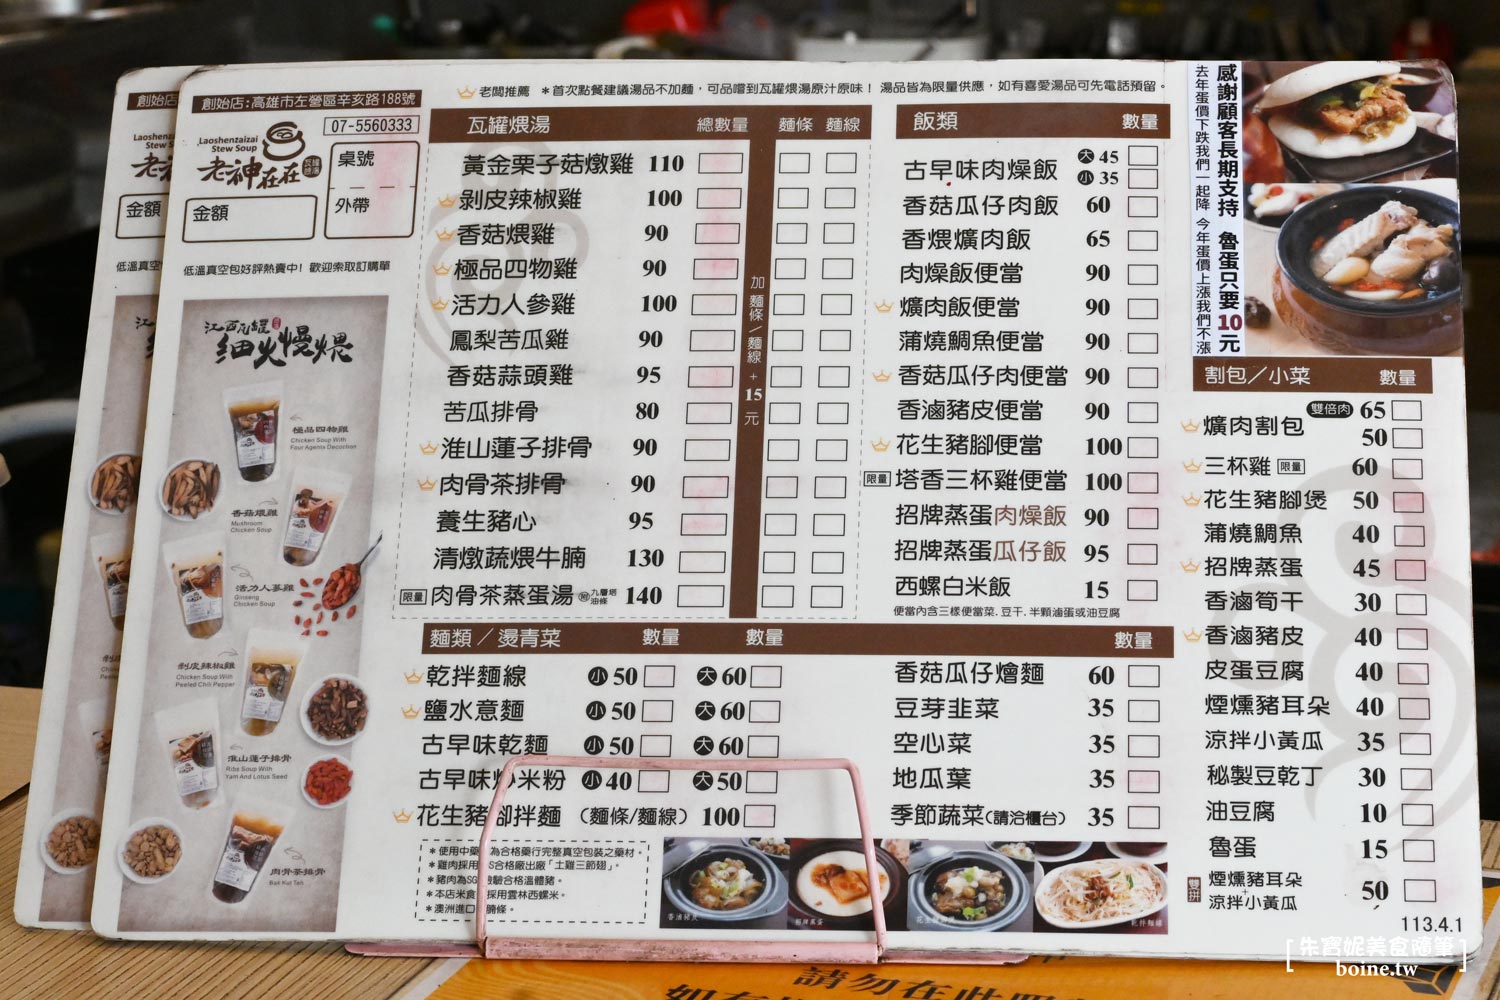 創始店:高雄市左營區辛亥路188號
Laoshenzaizai
Stew Soup
老神在在
07-5560333
桌號
外帶
金額
低溫真空包好評熱賣中！歡迎索取訂購單
江西瓦罐
細火慢煨
極品四物雞
Chicken Soup With
Four Agents Decoction
香菇燉雞
Mushroom
Chicken Soup
活力人蔘雞
Ginseng
Chicken Soup
剝皮辣椒雞
Chicken Soup With
Peeled Chili Pepper
淮山蓮子排骨
Ribs Soup With
Yam And Lotus Seed
肉骨茶排骨
Bak Kut Teh
老闆推薦 ＊首次點餐建議湯品不加麵，可品嚐到瓦罐煨湯原汁原味！ 湯品皆為限量供應，如有喜愛湯品可先電話預留。
瓦罐煨湯 總數量 麵條 麵線
黃金栗子菇燉雞 110
剝皮辣椒雞 100
香菇煨雞 90
極品四物雞 90
活力人參雞 100
鳳梨苦瓜雞 90
香菇蒜頭雞 95
苦瓜排骨 80
淮山蓮子排骨 90
肉骨茶排骨 90
養生豬心 95
清燉蔬煨牛腩 130
限量 肉骨茶蒸蛋湯 附 九層塔 油條 140
加麵條/麵線+15元
飯類 數量
古早味肉燥飯 大 45
小 35
香菇瓜仔肉飯 60
香煨爌肉飯 65
肉燥飯便當 90
爌肉飯便當 90
蒲燒鯛魚便當 90
香菇瓜仔肉便當 90
香滷豬皮便當 90
花生豬腳便當 100
限量 塔香三杯雞便當 100
招牌蒸蛋肉燥飯 90
招牌蒸蛋瓜仔飯 95
西螺白米飯 15
便當內含三樣便當菜. 豆干. 半顆滷蛋或油豆腐
麵類／燙青菜 數量 數量 數量
乾拌麵線 小 50 大 60
鹽水意麵 小 50 大 60
古早味乾麵 小 50 大 60
古早味炒米粉 小 40 大 50
花生豬腳拌麵 (麵條/麵線) 100
香菇瓜仔燴麵 60
豆芽韭菜 35
空心菜 35
地瓜葉 35
季節蔬菜(請洽櫃台) 35
＊使用中藥 為合格藥行完整真空包裝之藥材。
＊雞肉採用 S合格廠出廠「土雞三節翅」。
＊豬肉為SG 檢驗合格溫體豬。
＊本店米食 採用雲林西螺米。
＊澳洲進口 腩條。
香滷豬皮
招牌蒸蛋
乾拌麵線
感謝顧客長期支持 魯蛋只要10元
去年蛋價下跌我們一起降 今年蛋價上漲我們不漲
割包／小菜 數量
爌肉割包 雙倍肉 65
50
三杯雞 限量 60
花生豬腳煲 50
蒲燒鯛魚 40
招牌蒸蛋 45
香滷筍干 30
香滷豬皮 40
皮蛋豆腐 40
煙燻豬耳朵 40
涼拌小黃瓜 35
秘製豆乾丁 30
油豆腐 10
魯蛋 15
雙拼 煙燻豬耳朵
+
涼拌小黃瓜 50
113.4.1
[朱寶妮美食隨筆]
boine.tw
請勿在此